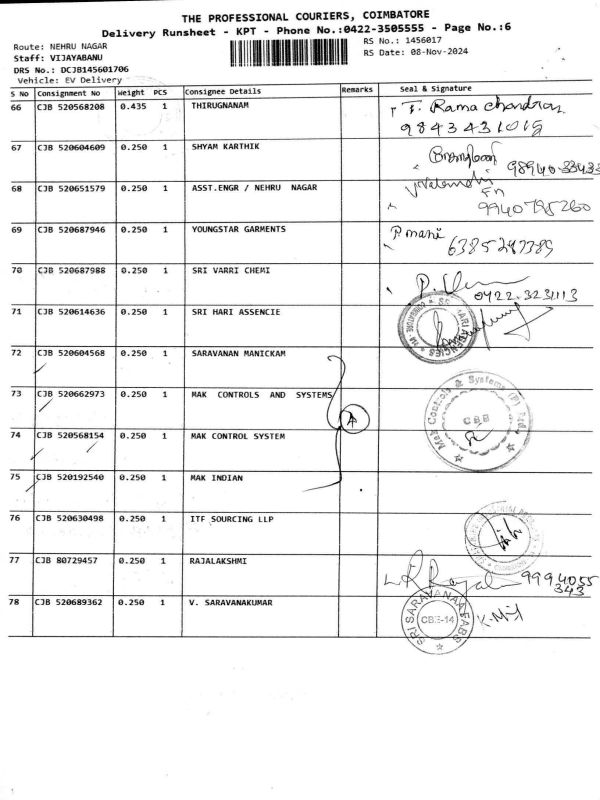 THE PROFESSIONAL COURIERS, COIMBATORE
Delivery Runsheet - KPT - Phone No.:0422-3505555 - Page No.:6
Route: NEHRU NAGAR
Staff: VIJAYABANU
DRS No.: DCJB145601706
Vehicle: EV Delivery
RS No.: 1456017
RS Date: 08-Nov-2024
S No Consignment No Weight PCS Consignee Details Remarks Seal & Signature
66 CJB 520568208 0.435 1 THIRUGNANAM T. Rama chandran
9843431019
67 CJB 520604609 0.250 1 SHYAM KARTHIK
98940-33433
68 CJB 520651579 0.250 1 ASST.ENGR / NEHRU NAGAR
9940795260
69 CJB 520687946 0.250 1 YOUNGSTAR GARMENTS P. mani
6385247389
70 CJB 520687988 0.250 1 SRI VARRI CHEMI
0422-3231113
71 CJB 520614636 0.250 1 SRI HARI ASSENCIE
72 CJB 520604568 0.250 1 SARAVANAN MANICKAM
73 CJB 520662973 0.250 1 MAK CONTROLS AND SYSTEMS Mak Controls & Systems (P) Ltd.
CBE
74 CJB 520568154 0.250 1 MAK CONTROL SYSTEM
75 CJB 520192540 0.250 1 MAK INDIAN
76 CJB 520630498 0.250 1 ITF SOURCING LLP
77 CJB 80729457 0.250 1 RAJALAKSHMI
9994055
343
78 CJB 520689362 0.250 1 V. SARAVANAKUMAR SRI SARAVANAA FABS
CBE-14